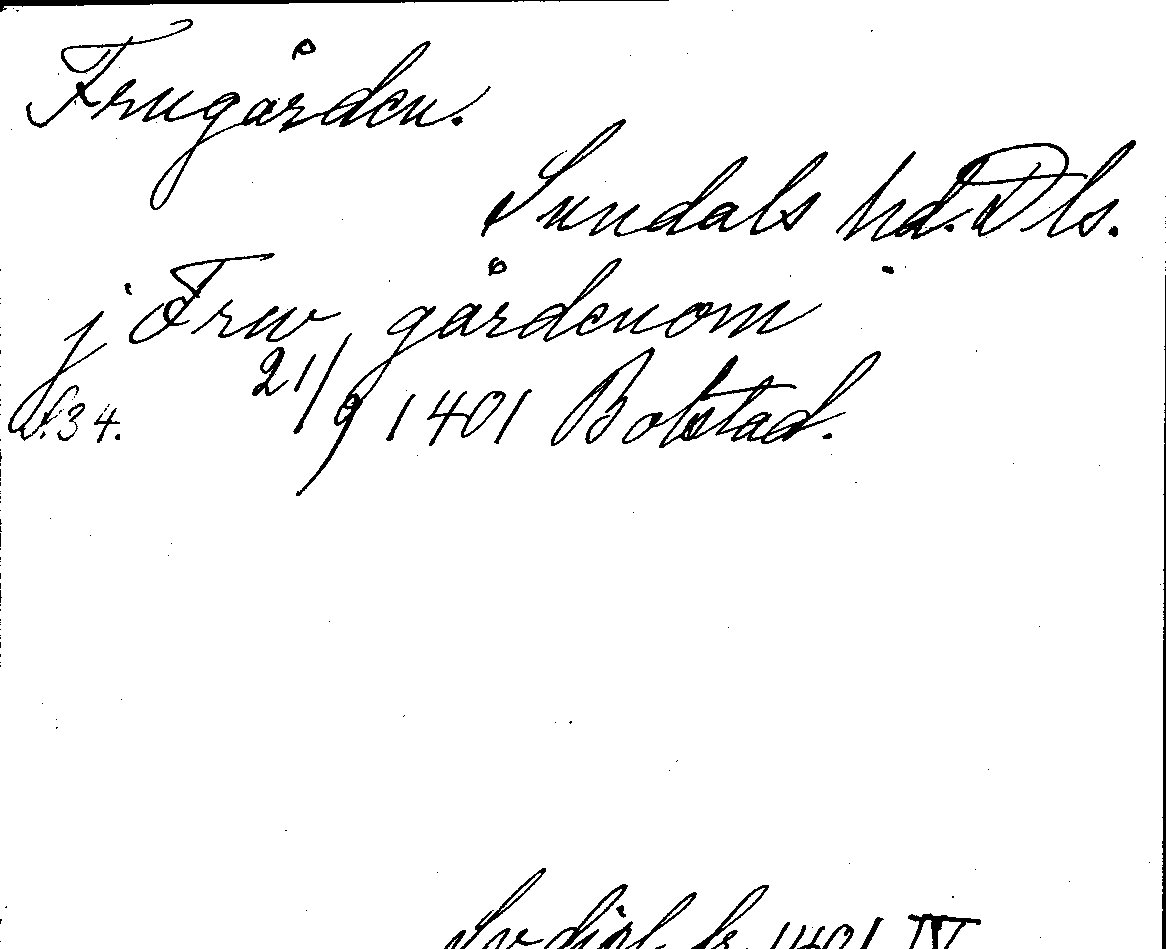 Frugården.
Sundals hd. Dls.
j Frw gårdenom
S. 34. 21/9 1401 Bolstad.
Sv dipl. fr. 1401 IV